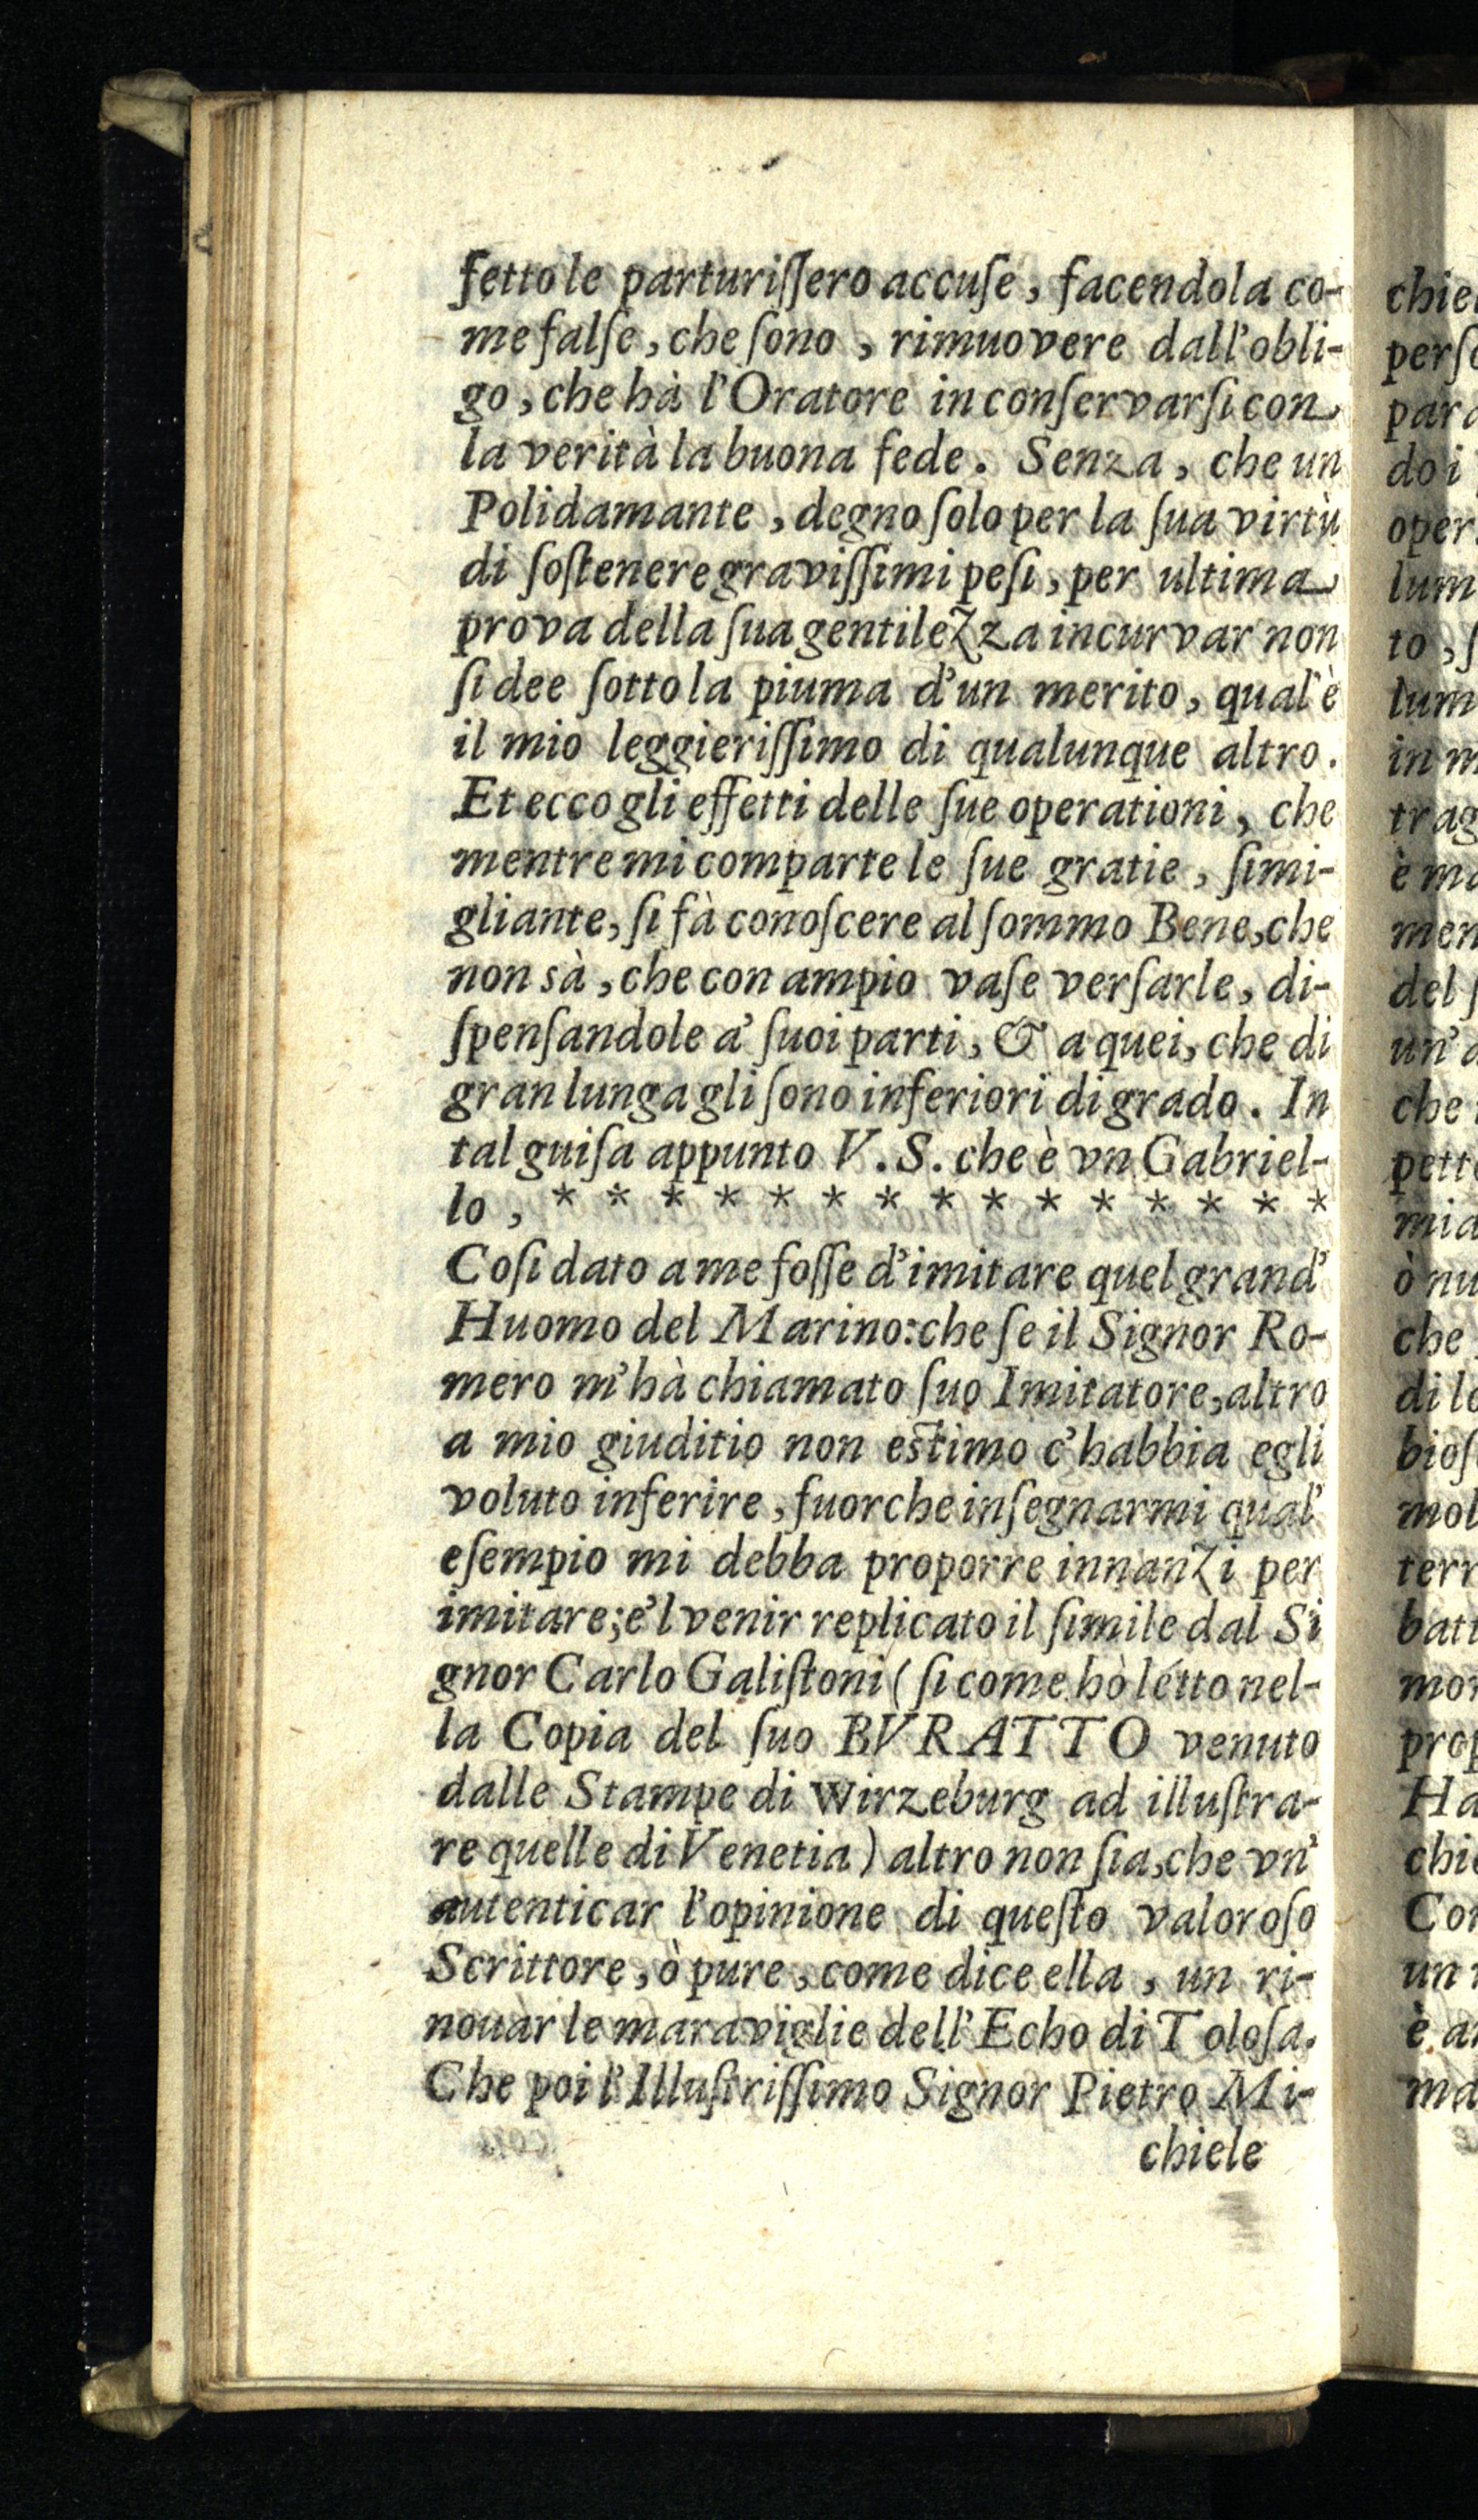 fetto le parturiſſero accuſe, facendola co-
me falſe, che ſono, rimuovere dall'obli-
go, che hà l'Oratore in conſervarſi con
la verità la buona fede. Senza, che un
Polidamante, degno ſolo per la ſua virtù
di ſoſtenere graviſſimi peſi, per ultima
prova della ſua gentilezza incurvar non
ſi dee ſotto la piuma d'un merito, qual'è
il mio leggieriſſimo di qualunque altro.
Et ecco gli effetti delle ſue operationi, che
mentre mi comparte le ſue gratie, ſimi-
gliante, ſi fà conoſcere al ſommo Bene, che
non sà, che con ampio vaſe verſarle, di-
ſpenſandole a' ſuoi parti, & a quei, che di
gran lunga gli ſono inferiori di grado. In
tal guiſa appunto V. S. che è vn Gabriel-
lo, * * * * * * * * * * * * * * *
Coſi dato a me foſſe d'imitare quel grand'
Huomo del Marino: che ſe il Signor Ro-
mero m'hà chiamato ſuo Imitatore, altro
a mio giuditio non estimo c'habbia egli
voluto inferire, fuorche inſegnarmi qual'
eſempio mi debba proporre innanzi per
imitare; e'l venir replicato il ſimile dal Si
gnor Carlo Galiſtoni ( ſi come hò létto nel-
la Copia del ſuo BVRATTO venuto
dalle Stampe di Wirzeburg ad illuſtra-
re quelle di Venetia ) altro non ſia, che vn'
autenticar l'opinione di queſto valoroſo
Scrittore, ò pure, come dice ella, un ri-
nouar le maraviglie dell'Echo di Toloſa.
Che poi l'Illuſtriſſimo Signor Pietro Mi-
chiele